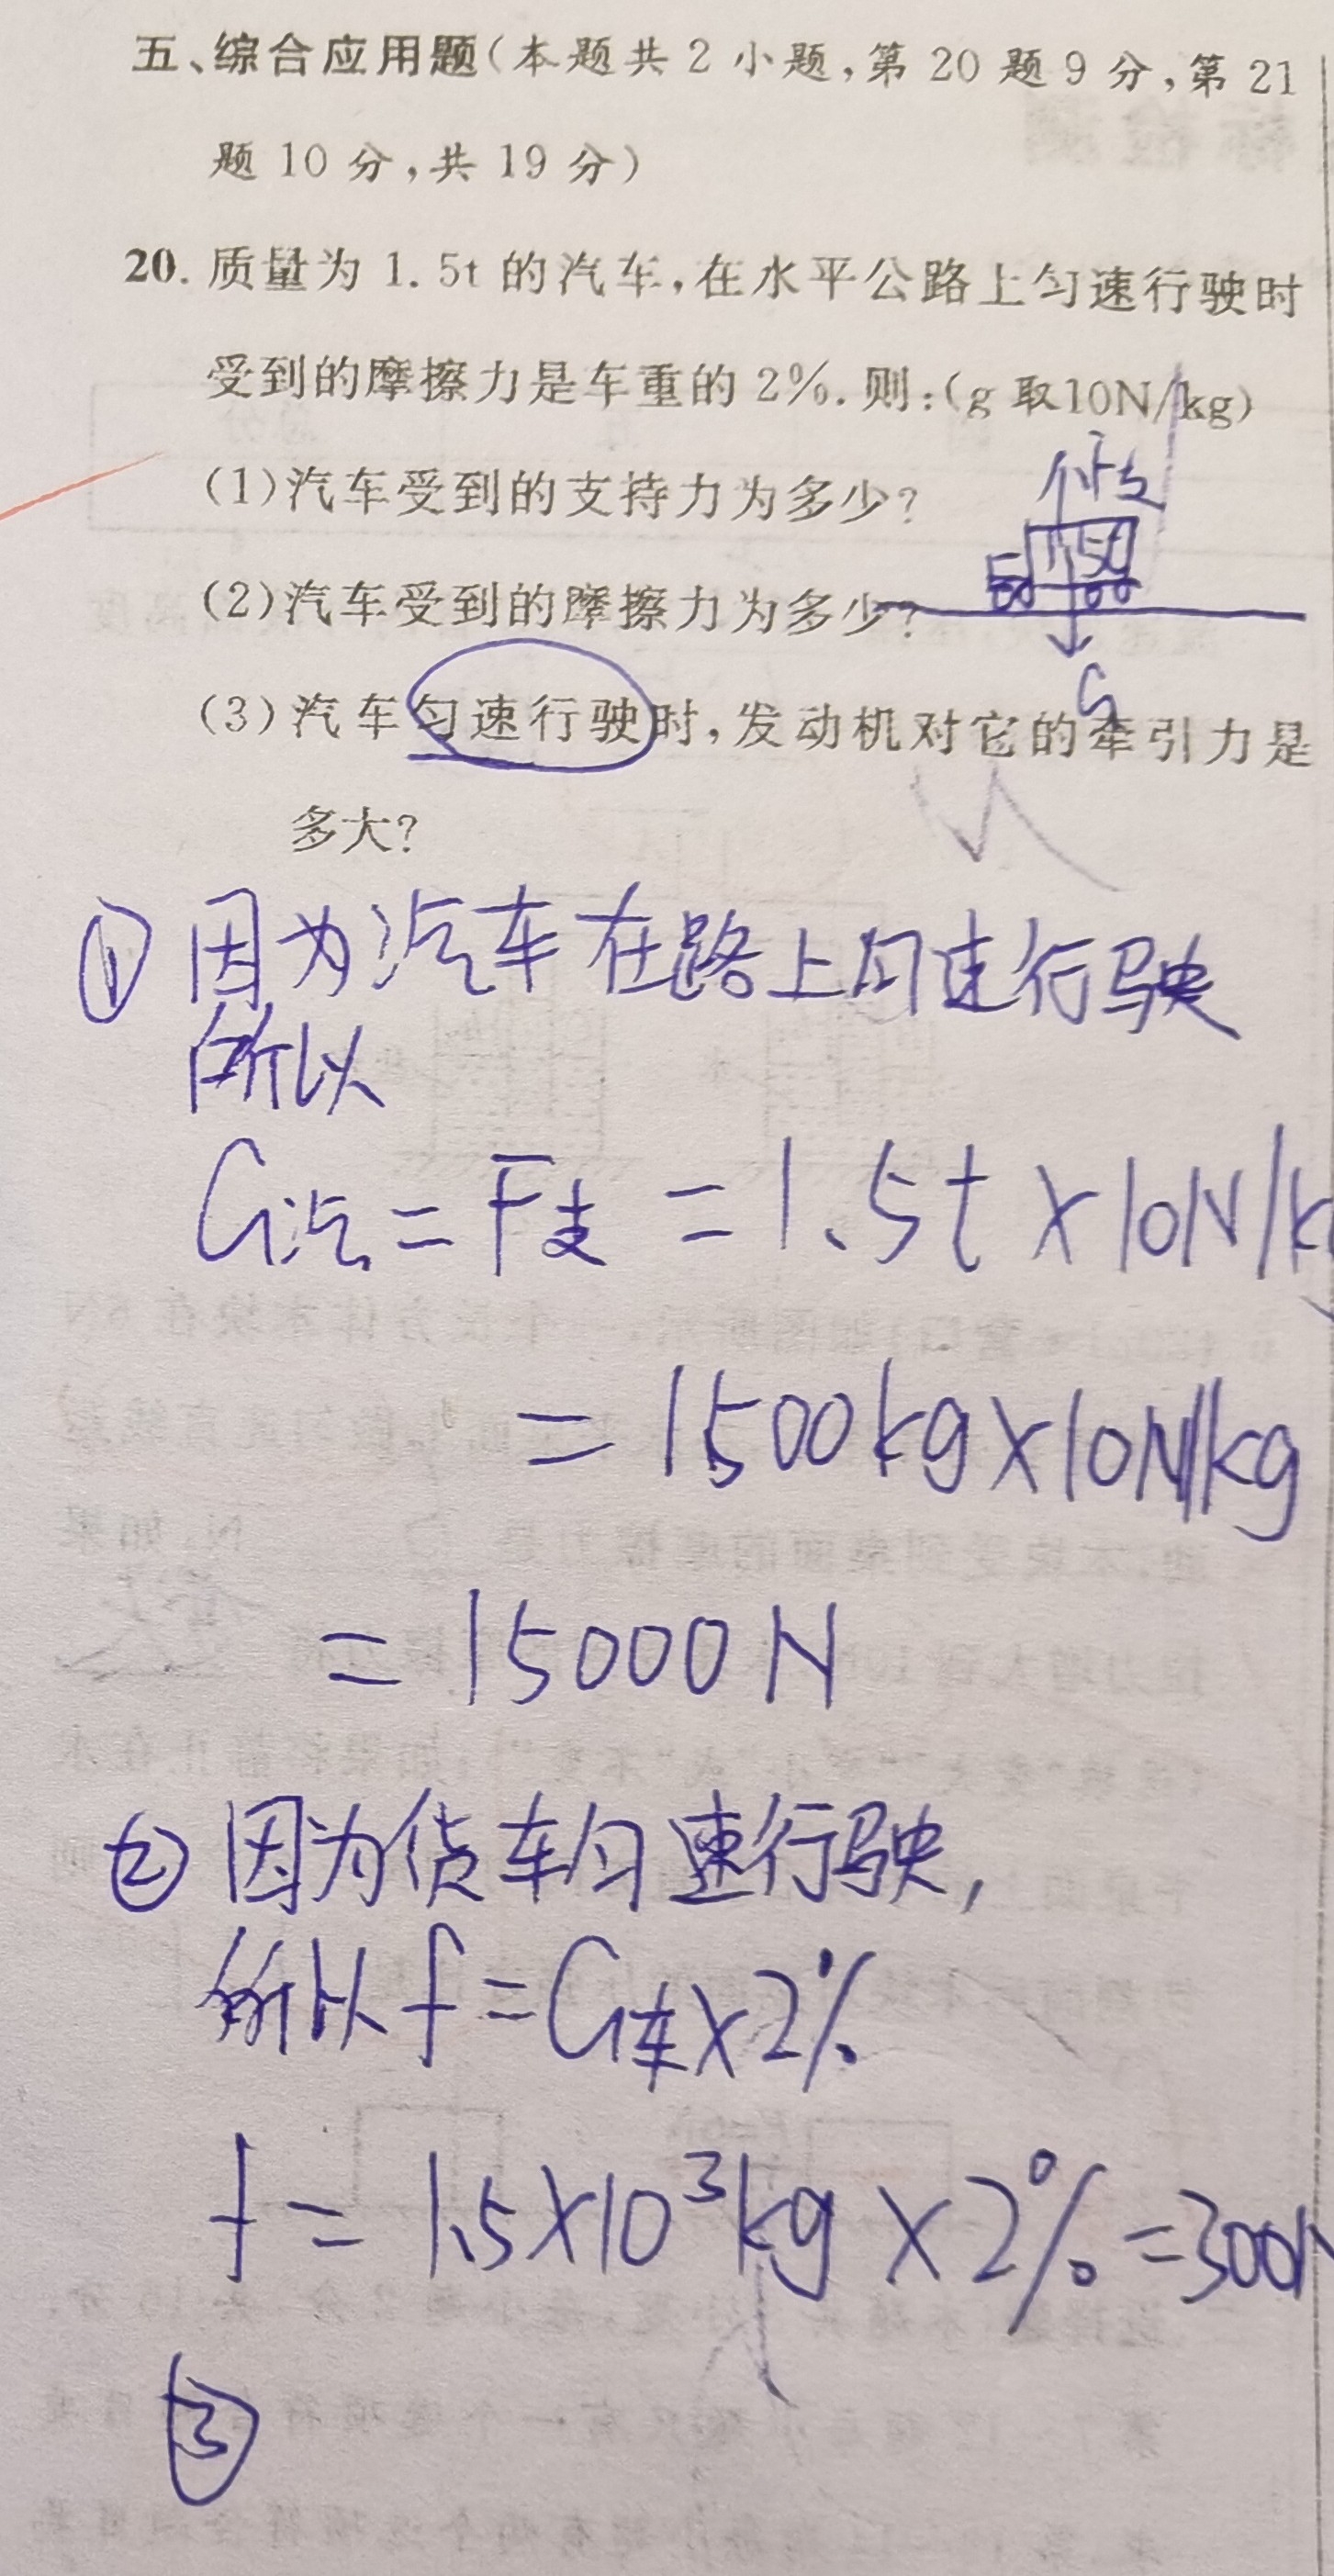 五、综合应用题(本题共 2 小题,第 20 题 9 分,第 21
题 10 分,共 19 分)
20. 质量为 1.5t 的汽车,在水平公路上匀速行驶时
受到的摩擦力是车重的 2%. 则:(g 取10N/kg)
(1)汽车受到的支持力为多少?
F支
1.5t
(2)汽车受到的摩擦力为多少?
G
(3)汽车匀速行驶时,发动机对它的牵引力是
多大?
① 因为汽车在路上匀速行驶
所以
G汽=F支=1.5t×10N/k
=1500kg×10N/kg
=15000N
② 因为货车匀速行驶,
所以f=G车×2%
f=1.5×10³kg×2%=300N
③